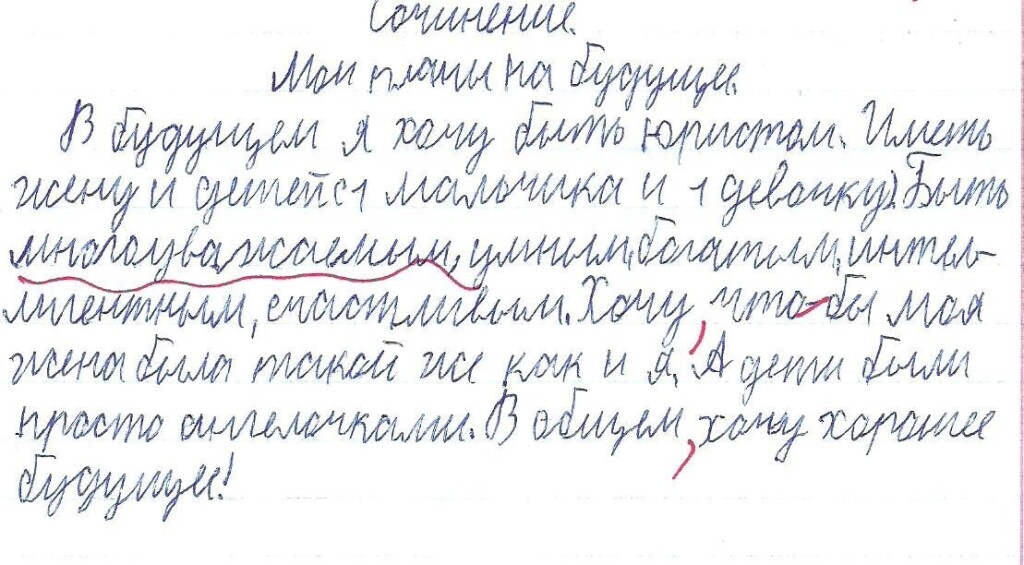 Сочинение.
Мои планы на будущее.
В будущем я хочу быть юристом. Иметь
жену и детей (1 мальчика и 1 девочку). Быть
многоуважаемым, умным, богатым, интел-
лигентным, счастливым. Хочу, что-бы моя
жена была такой же как и я. А дети были
просто ангелочками. В общем, хочу хорошее
будущее!